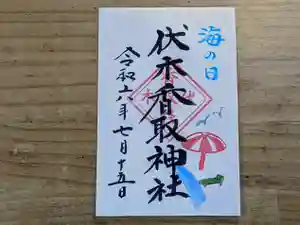 海の日
伏木香取神社
令和六年七月十五日